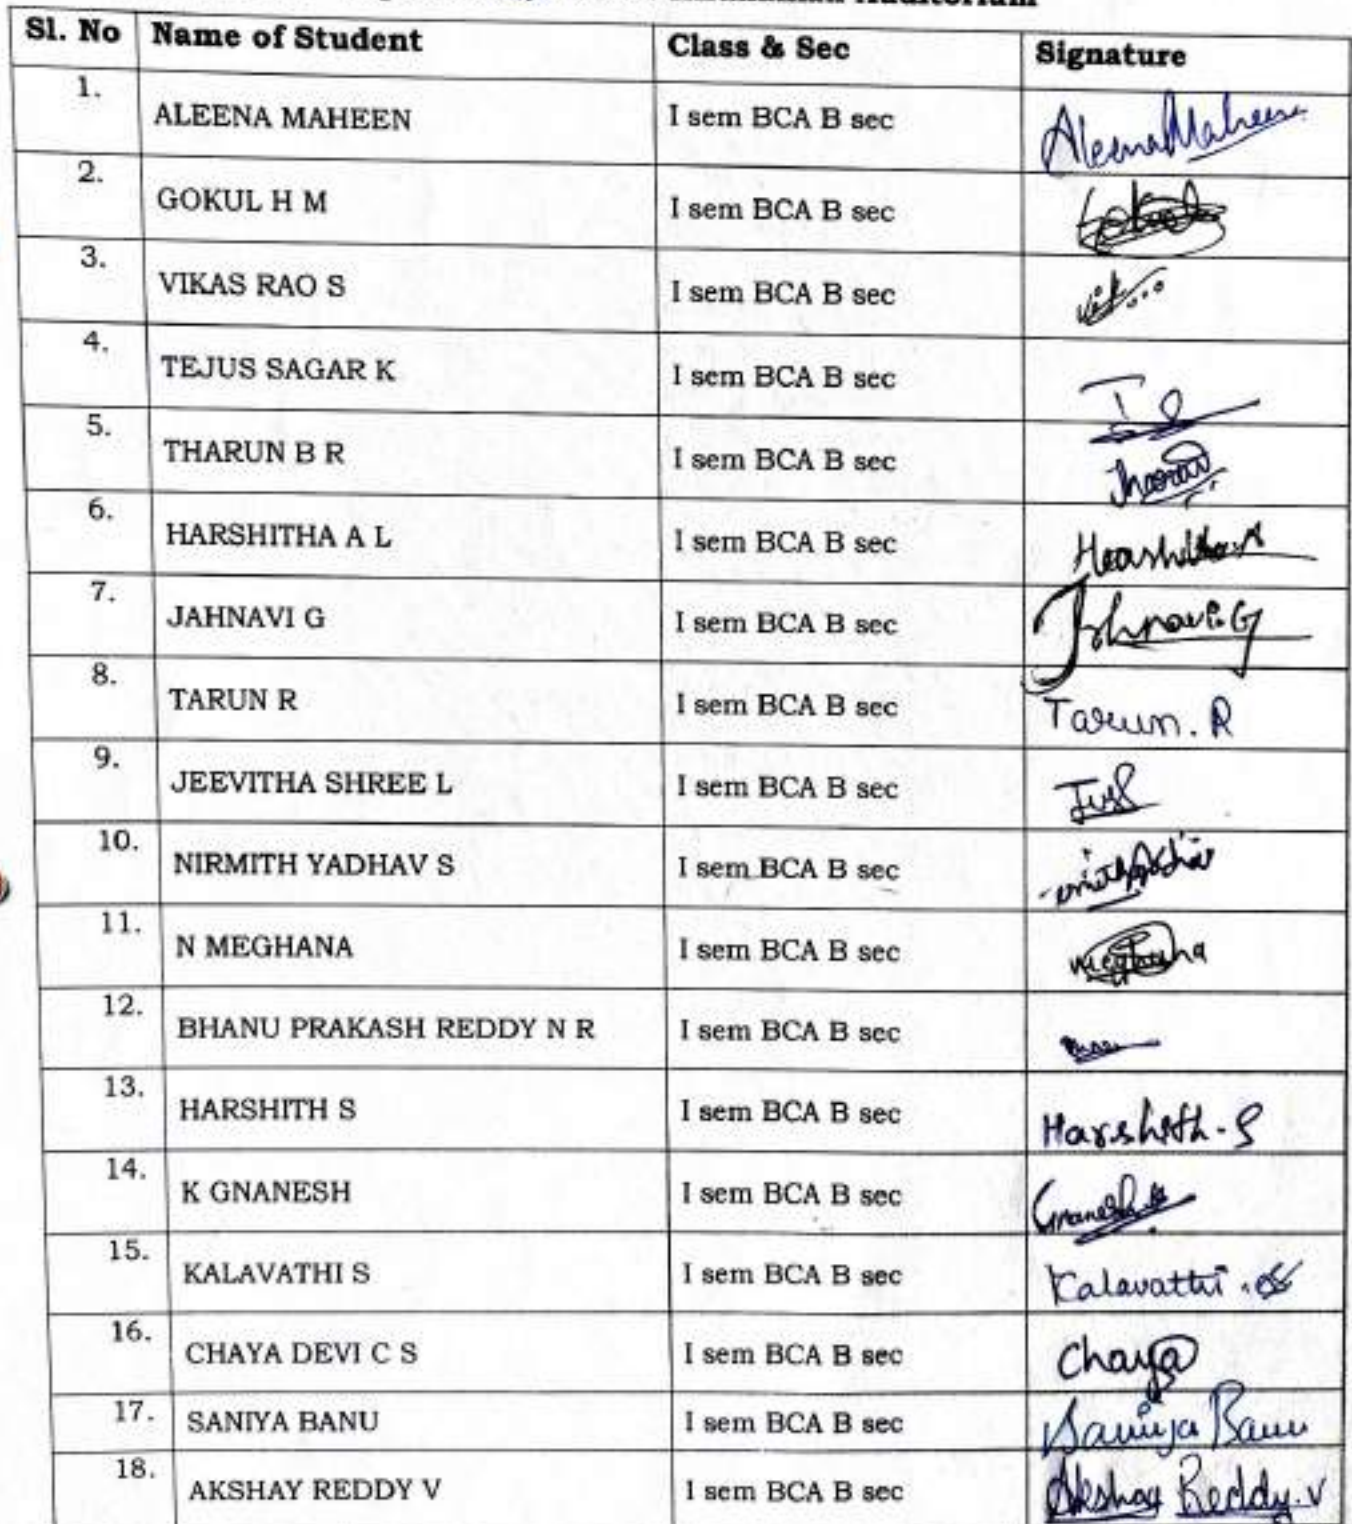 Auditorium
Sl. No Name of Student Class & Sec Signature
1. ALEENA MAHEEN I sem BCA B sec Aleena Maheen
2. GOKUL H M I sem BCA B sec Gokul
3. VIKAS RAO S I sem BCA B sec
4. TEJUS SAGAR K I sem BCA B sec
5. THARUN B R I sem BCA B sec
6. HARSHITHA A L I sem BCA B sec
7. JAHNAVI G I sem BCA B sec Jahnavi.G
8. TARUN R I sem BCA B sec Tarun. R
9. JEEVITHA SHREE L I sem BCA B sec
10. NIRMITH YADHAV S I sem BCA B sec
11. N MEGHANA I sem BCA B sec Meghana
12. BHANU PRAKASH REDDY N R I sem BCA B sec
13. HARSHITH S I sem BCA B sec Harshith - S
14. K GNANESH I sem BCA B sec Gnanesh.k
15. KALAVATHI S I sem BCA B sec Kalavathi .S
16. CHAYA DEVI C S I sem BCA B sec Chaya
17. SANIYA BANU I sem BCA B sec Saniya Banu
18. AKSHAY REDDY V I sem BCA B sec Akshay Reddy.V